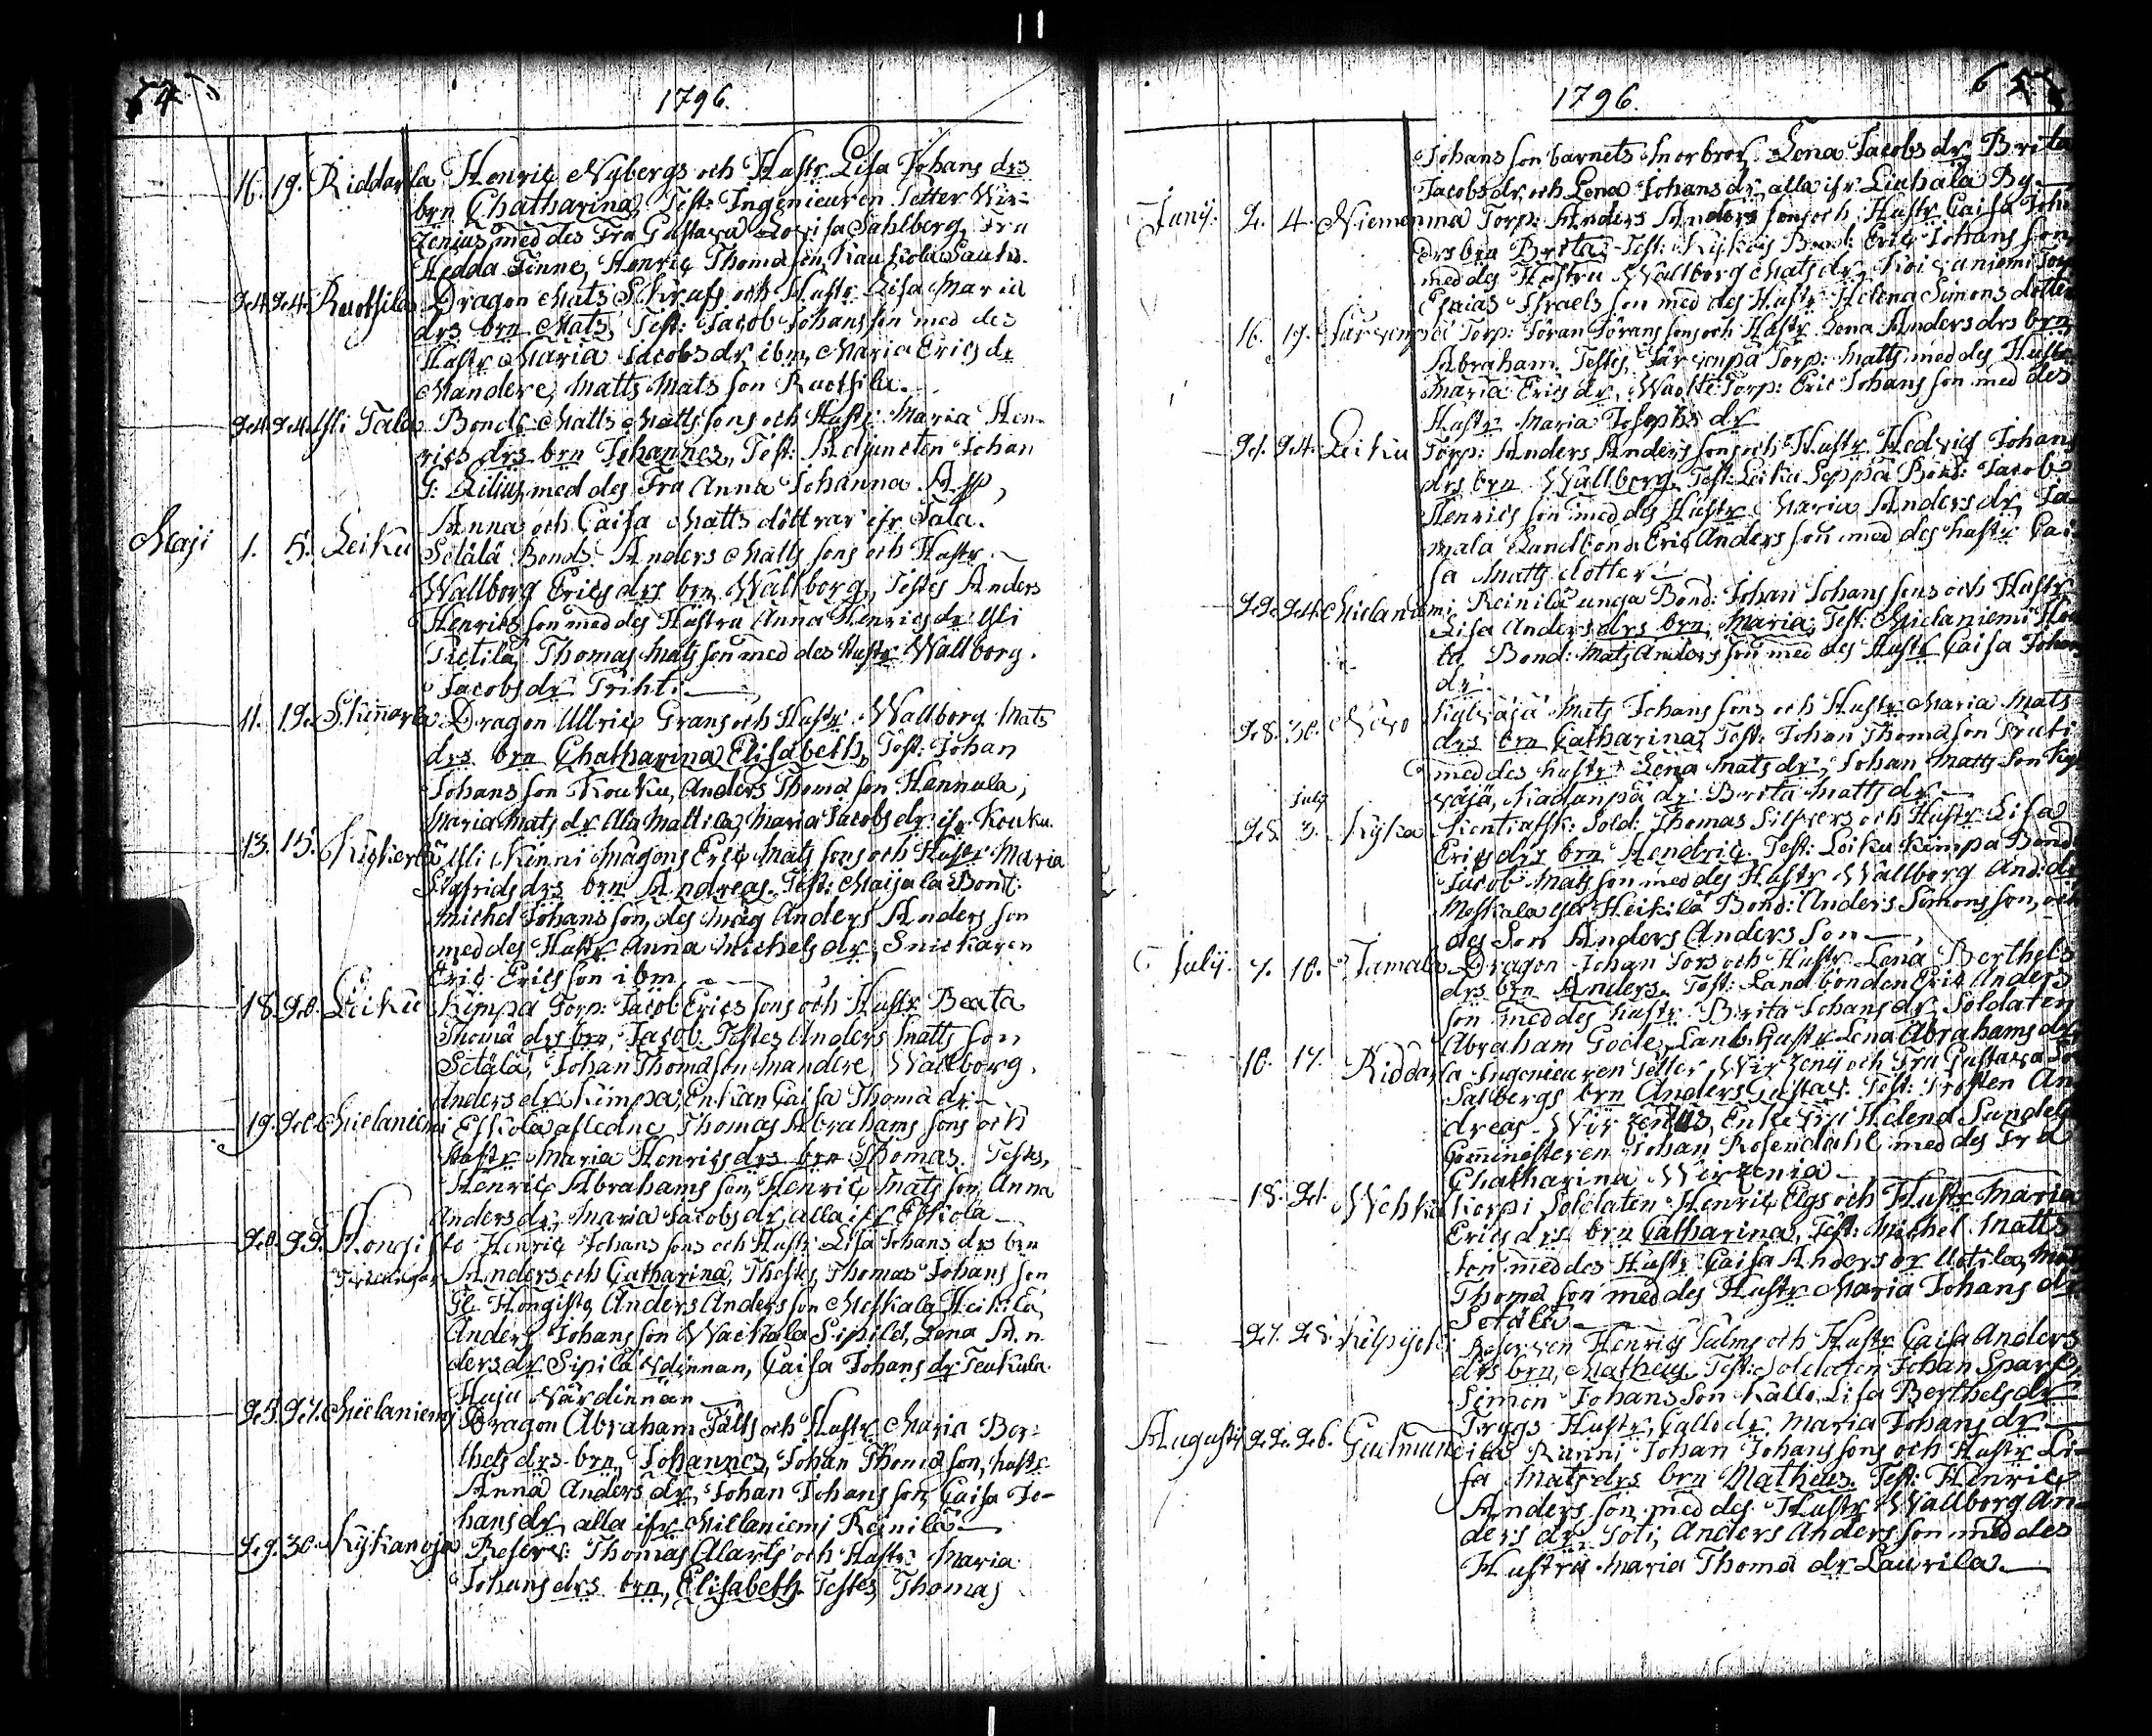 64
1796.
16. 19. Riddarla Henric Nybergs och Hustr. Lisa Johans drs
brn Chatharina, Test: Ingenieuren Petter Wir-
zenius med des Fru Gustava Lovisa Sahlberg, Fru
Hedda Finne, Henric Thomä son
24. 24. Ruotsila Dragon Mats och Hustr. Lisa Maria
drs brn Mats, Test: Jacob Johans son med des
Hustr Maria Jacobs dr ibm, Maria Erics dr
Mandere, Matts Mats son Ruotsila.
24. 24. Yli Tala Bonds Matts Matts sons och Hustr. Maria Hen-
rics drs brn Johannes, Test: Adjuncten Johan
G: Lilius med des Fru Anna Johanna
Anna och Caisa Matts döttrar ifr. Tala.
Maji 1. 5. Leiku Setälä Bonds Anders Matts sons och Hustr.
Wallborg Erics drs brn Wallborg, Testes Anders
Henrics son med des Hustru Anna Henrics dr Yli
Pietilä, Thomas Mats son med des Hustr Wallborg
Jacobs dr Prihti.
11. 12. Skinnarla Dragon Ulric Grans och Hustr. Wallborg Mats
drs brn Chatharina Elisabeth, Test: Johan
Johans son Kouku, Anders Thomä son Hannula,
Maria Mats dr Ala Mattila, Maria Jacobs dr ifr. Kouku.
13. 15. Yli Kinni Mågens Eric Mats sons och Hustr Maria
Sigfrids drs brn Andreas. Test: Maijala Bond:
Michel Johans son, des Måg Anders Anders son
med des Hustr Anna Michels dr, Snickaren
Eric Erics son ibm.
18. 20. Leiku Kimpa Torp: Jacob Erics sons och Hustr Beata
Thomä drs brn, Jacob. Testes Anders Matts son
Setälä, Johan Thomä son Mandere, Wallborg
Anders dr Kimpa, Enkan Caisa Thomä dr
19. 20. Mielaniemi Eskola afledne Thomas Abrahams sons och
Hustr Maria Henrics drs brn Thomas. Testes,
Henric Abrahams son, Henric Mats son, Anna
Anders dr, Maria Jacobs dr, alla ifr Eskola
20. 22. Hongisto Henric Johans sons och Hustr Lisa Johans drs brn
Tvillingar Anders och Catharina, Thestes, Thomas Johans son
Hongisto, Anders Anders son Meskala Heikilä,
Anders Johans son Wackala Sipilä, Lena An-
ders dr Sipilä värdinnan, Caisa Johans dr
värdinnan
25. 27. Mielaniemi Dragon Abraham Fälts och Hustr. Maria Ber-
thels drs brn, Johannes, Johan Thomä son, hustr
Anna Anders dr, Johan Johans son, Caisa Jo-
hans dr, alla ifr Mielaniemi Reinilä
29. 30. Kykänoja Reserv: Thomas Alarts och Hustr Maria
Johans drs brn, Elisabeth Testes, Thomas
65
1796.
Johans son barnets morbror, Lena Jacobs dr, Brita
Jacobs dr och Lena Johans dr, alla ifr Liuhala By.
Junij. 2. 4. Niemenmaa Torp: Anders Anders sons och Hustr Caisa Joh:
drs brn Brita. Test: Bond: Eric Johans son
med des Hustru Wallborg Mats dr, Koivuniemi Torp
Esaias Israels son med des Hustr Helena Simons dotter
16. 19. Järvenpää Torp: Jöran Jörans sons och Hustr Lena Anders drs brn
Abraham, Testes, Järvenpä Torp: Matts med des Hustr
Maria Erics dr, Torp: Eric Johans son med des
Hustr Maria Josephs dr
21. 24. Leiku Torp: Anders Anders sons och Hustr Hedvig Johans
drs brn Wallborg, Test: Leiku Seppä Bond: Jacob
Henrics son med des Hustr Maria Anders dr, Ja-
mala Landbond: Eric Anders son med des hustr Cai-
sa Matts dotter
22. 24. Mielaniemi, Reinilä unga Bond: Johan Johans sons och Hustr
Lisa Anders drs brn, Maria, Test: Mielaniemi
Bond: Mats Anders son med des Hustr Caisa Johans
dr.
28. 30. Kylväjä Mats Johans sons och Hustr Maria Mats
drs brn Catharina, Test: Johan Thomä son
med des hustr Lena Mats dr, Johan Matts son Kyl
väjä, dr Brita Matts dr.
July
28. 3. Sold: Thomas Silfvers och Hustr Lisa
Erics drs brn Hendric Test: Leiku Kimpa Bond
Jacob Mats son med des Hustr Wallborg And: dr
Meskala Heikilä Bond: Anders Simons son, och
des Son Anders Anders son
July. 7. 10. Jamala Dragon Johan Tors och Hustr Lena Berthels
drs brn Anders. Test: Landbonden Eric Anders
son med des hustr Brita Johans dr, Soldaten
Abraham Gode, Landb. Hustr Lena Abrahams dr
10. 17. Riddarla Ingenieuren Petter Wirzenij och Fru Gustava Lo
Salbergs brn Anders Gustav. Test: Prosten An
dreas Wirzenius, Enke Fru Helena Sundel
Comministeren Johan Rosendahl med des Fru
Chatharina Wirzenia
18. 21. Korpi Soldaten Henric Elgs och Hustr Maria
Erics drs brn Catharina, Test: Michel Matts
son med des Hustr Caisa Anders dr Uotila,
Thomä son med des Hustr Maria Johans dr
Setälä
27. 28. Reserven Henric Palms och Hustr Caisa Anders
drs brn, Matheus Test: Soldaten Johan Sparf,
Simon Johans son Kallo, Lisa Berthels dr
Trygs Hustr, Maria Johans dr
Augusti 22. 26. Gudmundila Runni Johan Johans sons och Hustr Li-
sa Mats drs brn Matheus. Test: Henric
Anders son med des Hustr Wallborg An-
ders dr Soti, Anders Anders son med des
Hustru Maria Thomä dr Laurila